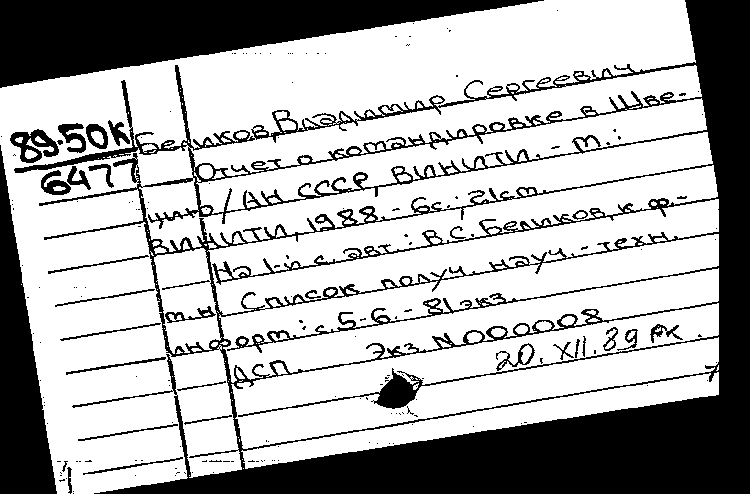 89-50К
6477
Беликов, Владимир Сергеевич.
Отчет о командировке в Шве-
цию / АН СССР, ВИНИТИ. - М.:
ВИНИТИ, 1988. - 6с.; 21см.
На 1-й с. авт.: В.С. Беликов, к.ф.-
м.н. Список получ. науч.-техн.
информ.: с.5-6. - 81 экз.
ДСП. Экз. N 000008
20. XII. 89 РК.